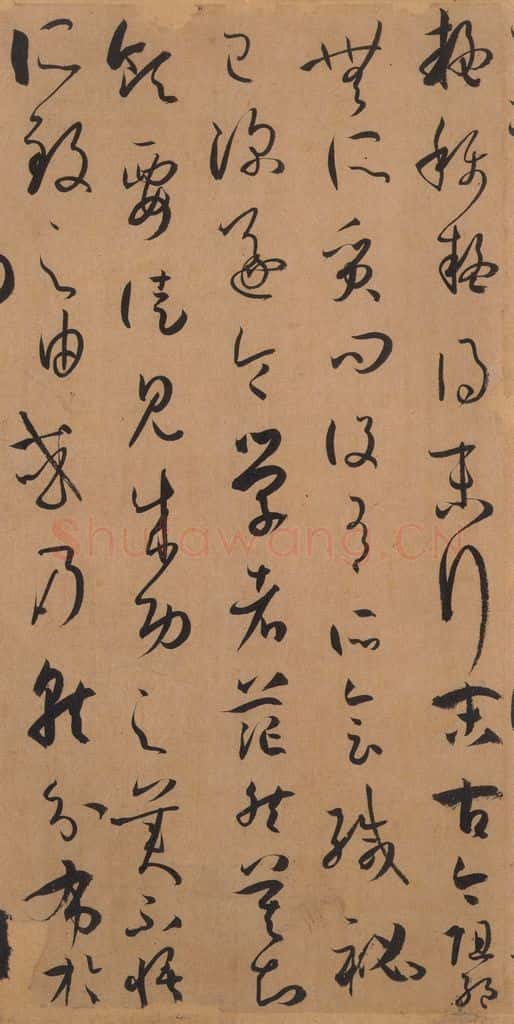 疑稱疑得末行末古今阻絕
無所質問設有所會緘秘
已深遂令學者茫然莫知
領要徒見成功之美不悟
所致之由或乃就分布於
Shufawang.CN